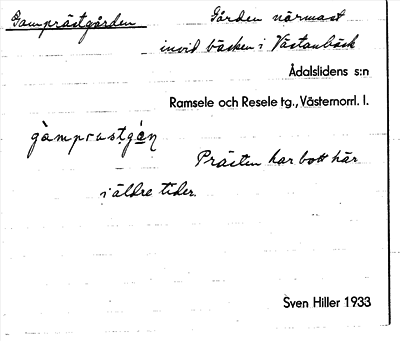 Gamprästgården
Gården närmast
invid bäcken i Västanbäck
Ådalslidens s:n
Ramsele och Resele tg., Västernorrl. l.
Prästen har bott här
i äldre tider.
Sven Hiller 1933